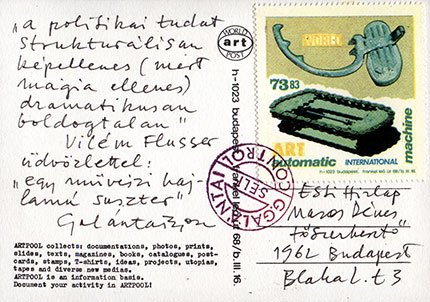 „a politikai tudat
strukturálisan
képellenes (mert
mágia ellenes)
dramatikusan
boldogtalan"
Vilém Flusser
üdvözlettel:
„egy művészi haj-
lamú suszter"
Galántai
ARTPOOL collects: documentations, photos, prints,
slides, texts, magazines, books, catalogues, post-
cards, stamps, T-shirts, ideas, projects, utopias,
tapes and diverse new medias.
ARTPOOL is an information basis.
Document your activity in ARTPOOL!
WORLD
art
POST
h-1023 budapest, frankel leó út 68/b. III. 16.
WORLD
73 83
ART
automatic INTERNATIONAL
machine
h-1023 budapest, frankel leó út 68/b III 16
G. GALANTAI
SELF
CONTROL
Esti Hirlap
Maros Dénes
főszerkesztő
1962 Budapest
Blaha L. t 3